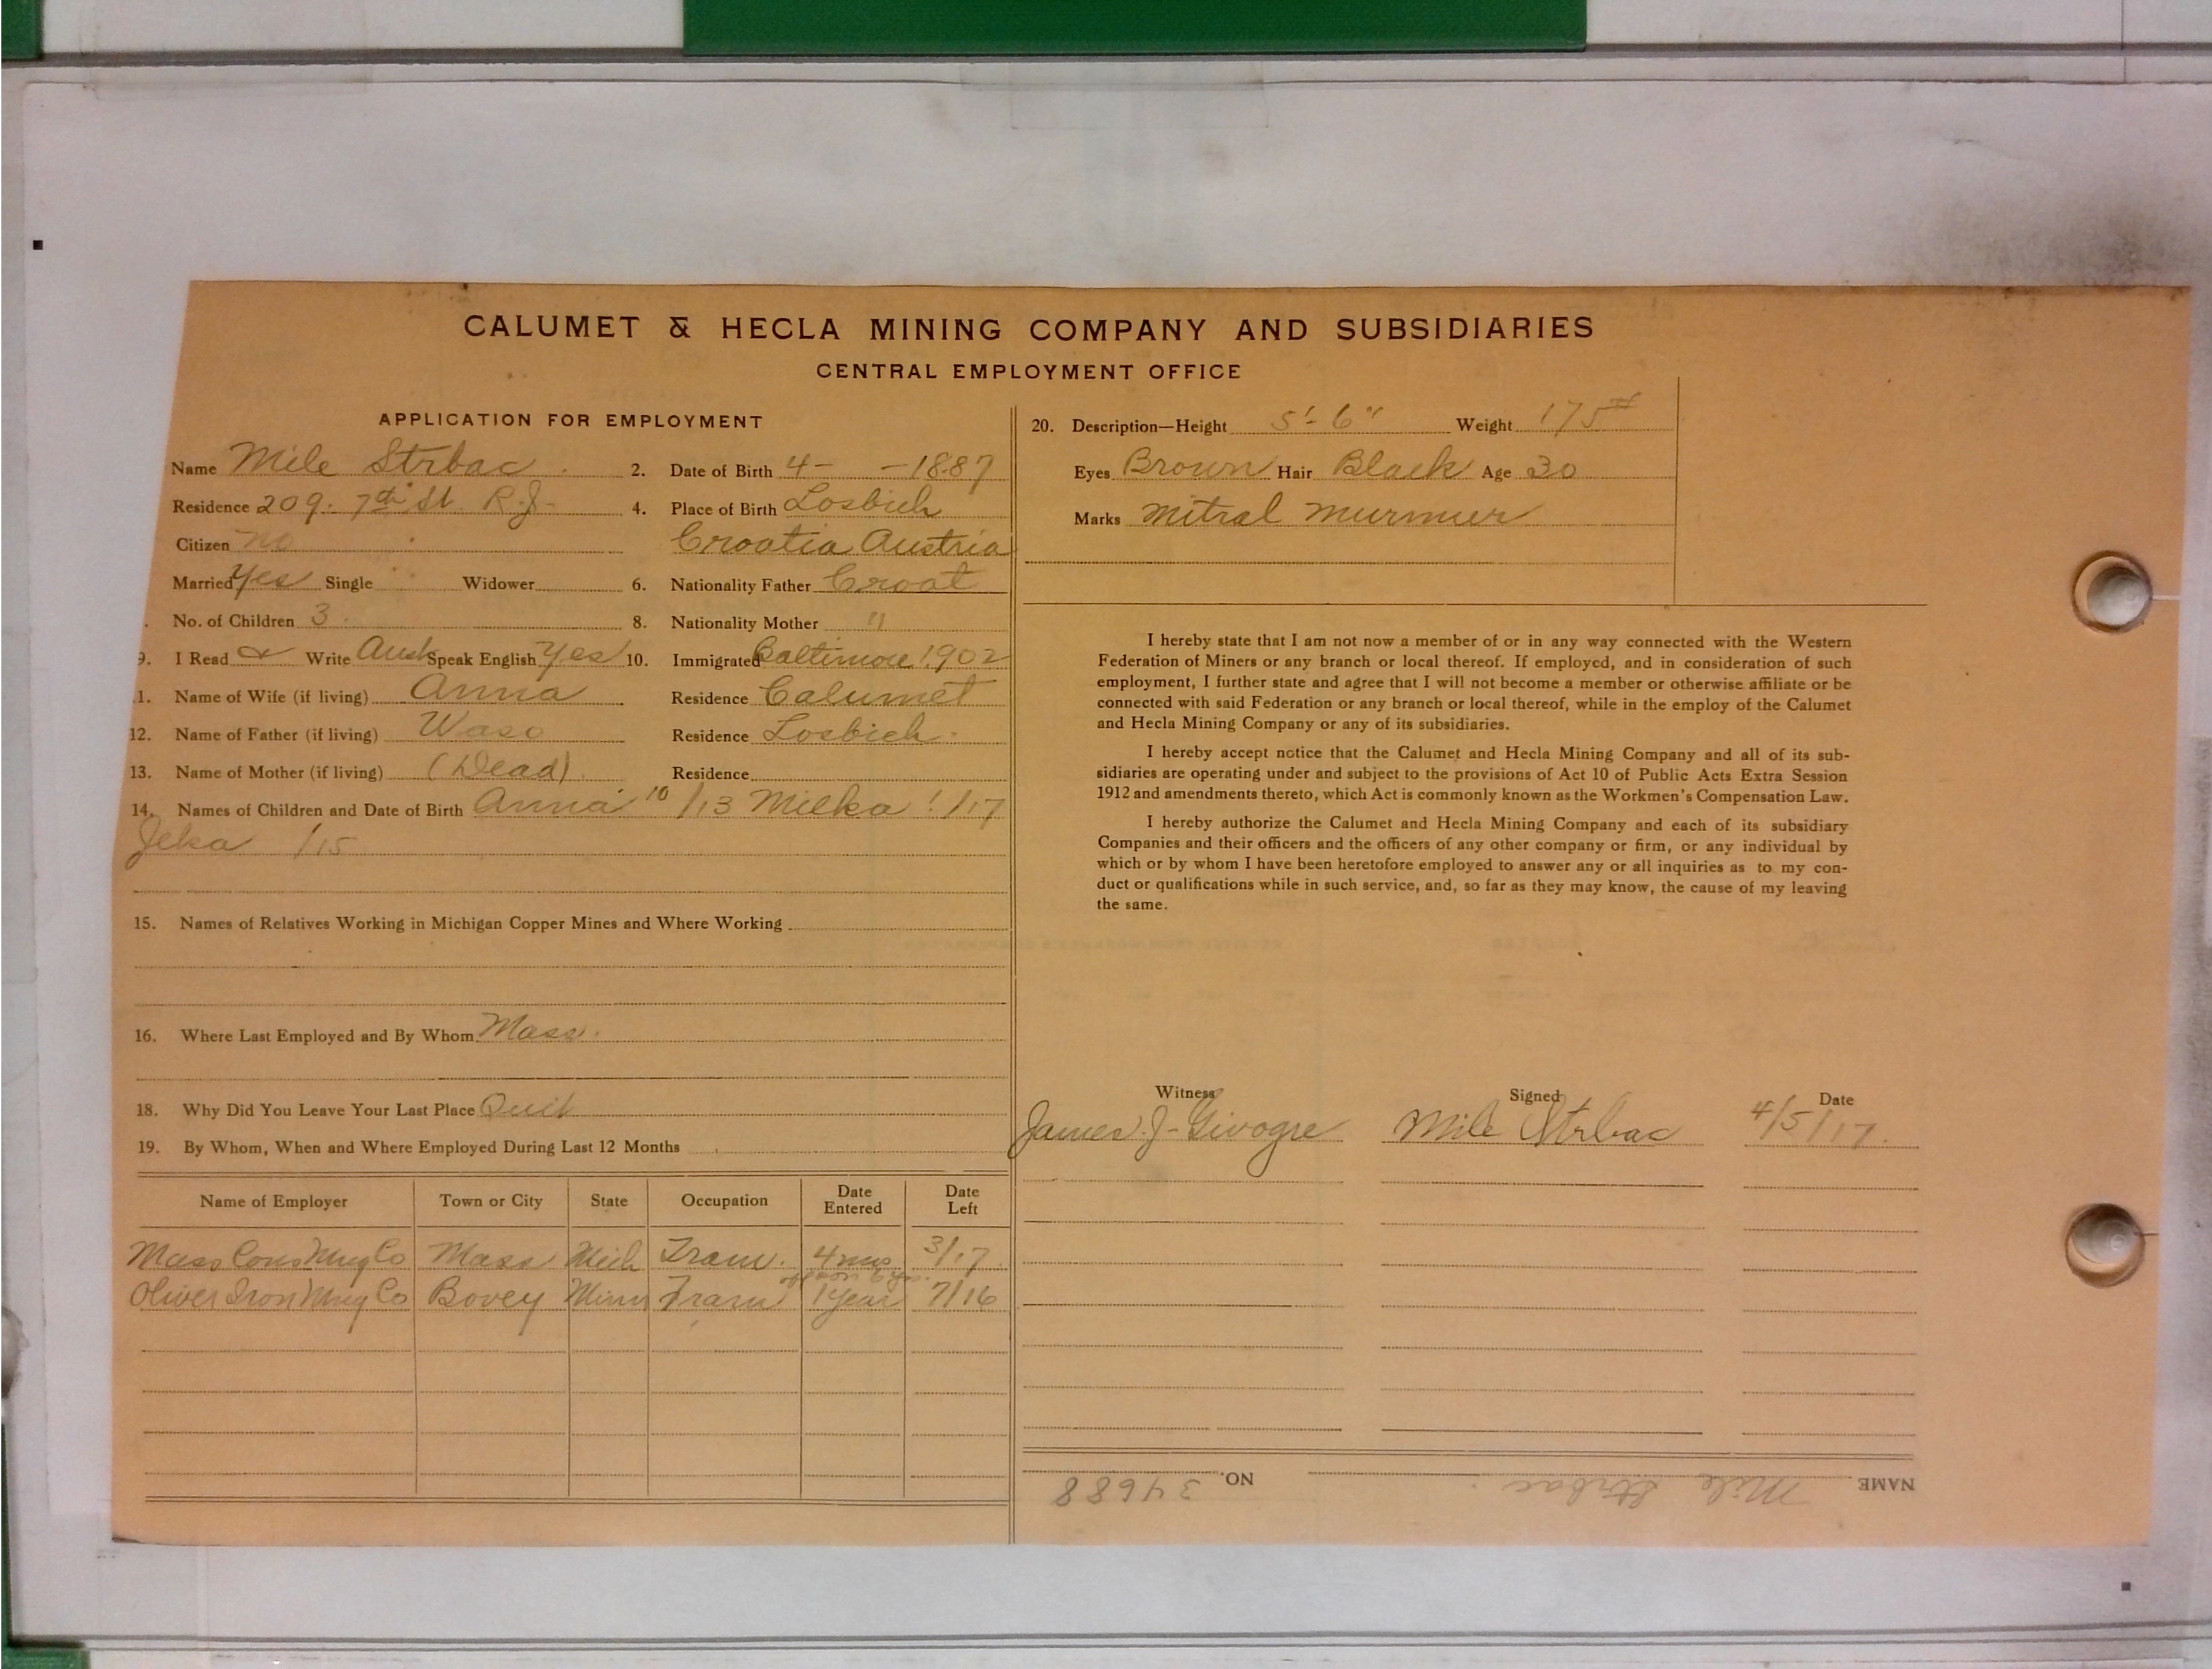 CALUMET & HECLA MINING COMPANY AND SUBSIDIARIES
CENTRAL EMPLOYMENT OFFICE
APPLICATION FOR EMPLOYMENT
Name Mile Strbac 2. Date of Birth 4- -1887
Residence 209. 7th St. R.J. 4. Place of Birth Losbich
Citizen No Croatia Austria
Married Yes Single Widower 6. Nationality Father Croat
No. of Children 3 8. Nationality Mother "
9. I Read & Write Aust Speak English Yes 10. Immigrated Baltimore 1902
1. Name of Wife (if living) Anna Residence Calumet
12. Name of Father (if living) Waso Residence Losbich
13. Name of Mother (if living) (Dead) Residence
14. Names of Children and Date of Birth Anna 10/13 Milka 1/17
Jeka /15
15. Names of Relatives Working in Michigan Copper Mines and Where Working
16. Where Last Employed and By Whom Mass.
18. Why Did You Leave Your Last Place Quit
19. By Whom, When and Where Employed During Last 12 Months
Name of Employer Town or City State Occupation Date Entered Date Left
Mass Cons Mng Co Mass Mich Tram. 4 mos 3/17
off & on
Oliver Iron Mng Co Bovey Minn Tram 1 year 7/16
20. Description—Height 5'- 6" Weight 175#
Eyes Brown Hair Black Age 30
Marks Mitral murmur
I hereby state that I am not now a member of or in any way connected with the Western
Federation of Miners or any branch or local thereof. If employed, and in consideration of such
employment, I further state and agree that I will not become a member or otherwise affiliate or be
connected with said Federation or any branch or local thereof, while in the employ of the Calumet
and Hecla Mining Company or any of its subsidiaries.
I hereby accept notice that the Calumet and Hecla Mining Company and all of its sub-
sidiaries are operating under and subject to the provisions of Act 10 of Public Acts Extra Session
1912 and amendments thereto, which Act is commonly known as the Workmen's Compensation Law.
I hereby authorize the Calumet and Hecla Mining Company and each of its subsidiary
Companies and their officers and the officers of any other company or firm, or any individual by
which or by whom I have been heretofore employed to answer any or all inquiries as to my con-
duct or qualifications while in such service, and, so far as they may know, the cause of my leaving
the same.
Witness Signed Date
James J. Givogre Mile Strbac 4/5/17.
NAME Mile Strbac NO. 34688